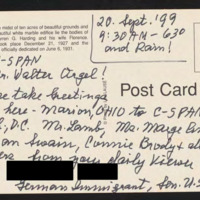 midst of ten acres of beautiful grounds and
beautiful white marble edifice lie the bodies of
Warren G. Harding and his wife Florence.
took place December 21, 1927 and the
officially dedicated on June 6, 1931.
20. Sept. '99
9:30 AM - 630
and Rain!
Post Card
C-SPAN
Mr. Walter
take Greetings
here - Marion, OHIO to C-SPAN
D.C. Mr. Lamb, Ms. Marge
Susan Swain, Connie Brody & all
from your daily Viewer
German Immigrant, Sen. U.S.